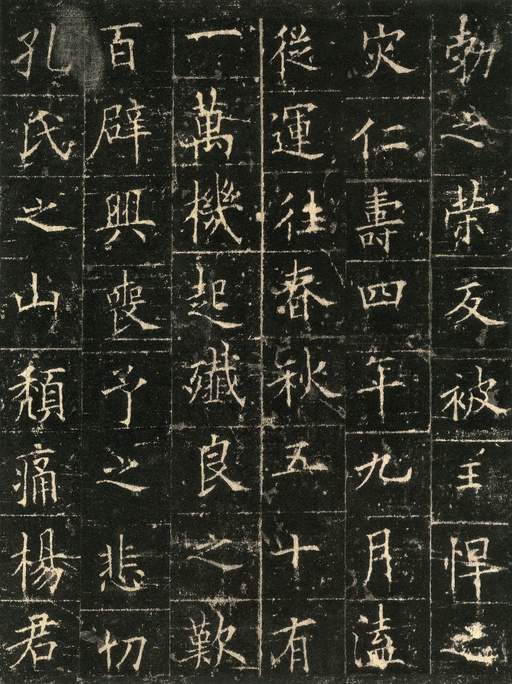 勃之榮反被主悍之
灾仁壽四年九月溘
從運往春秋五十有
一萬機起殲良之歎
百辟興喪予之悲切
孔氏之山頹痛楊君